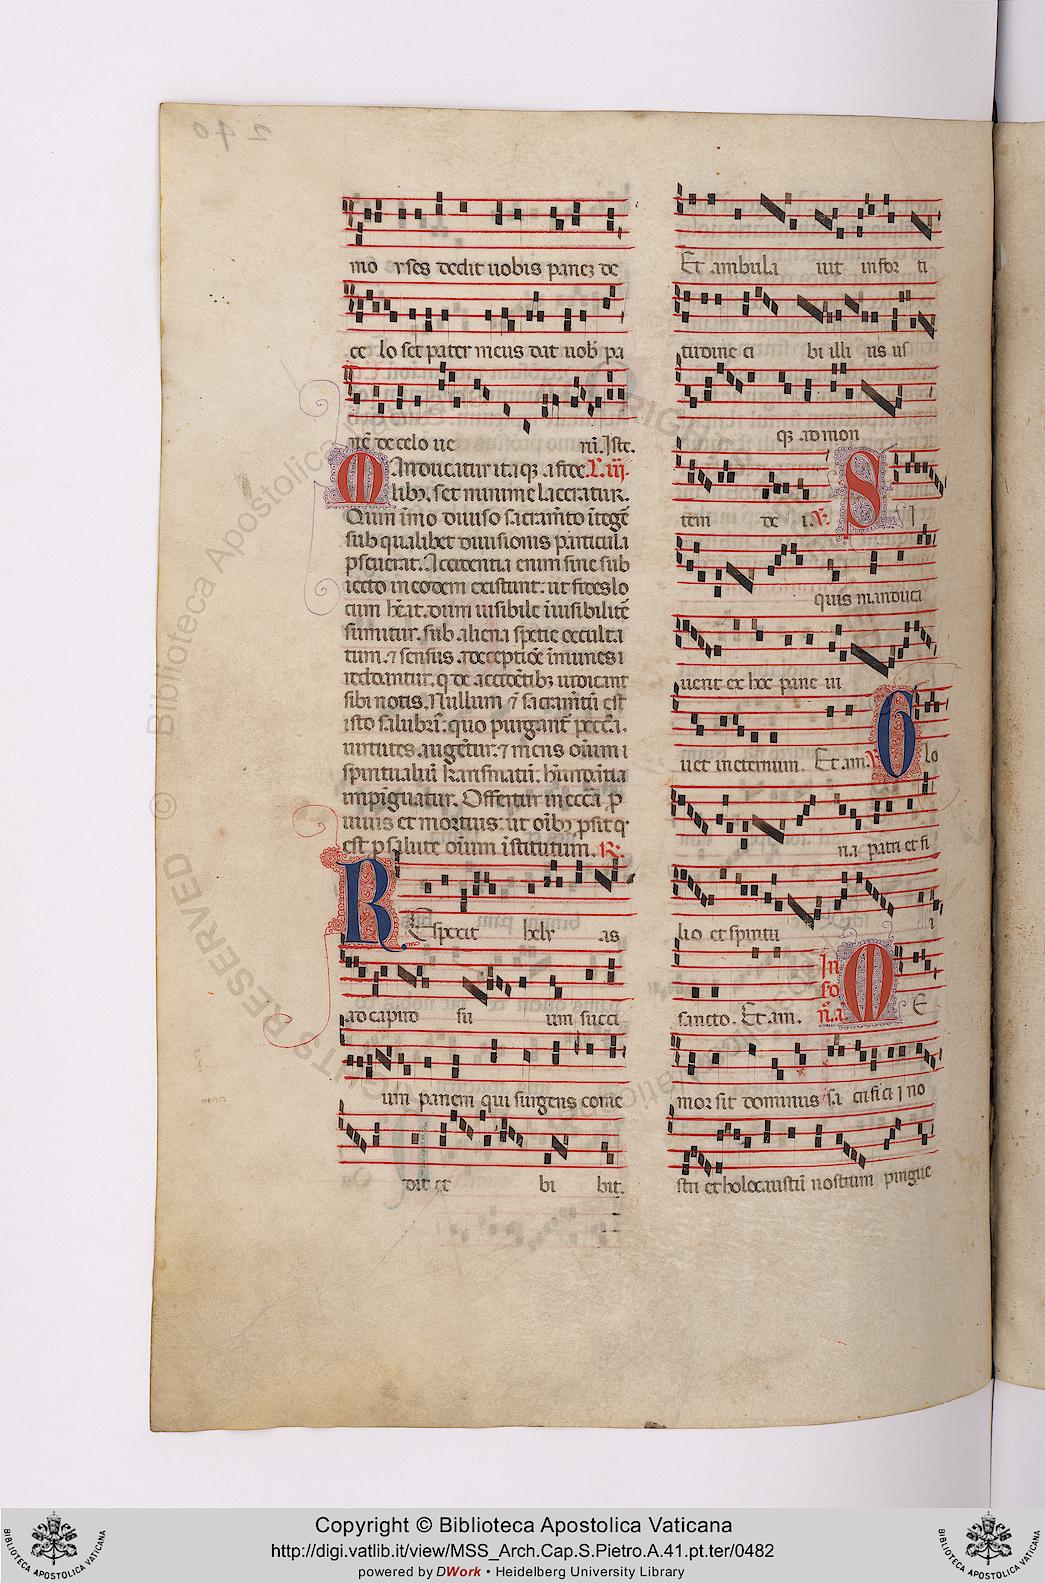 mo yses dedit uobis panez de
ce lo set pater meus dat uob pa
nē de celo ue rū. Iste.
Manducatur itaqz a fide. L. iij.
libz, set minime laceratur.
Quin īmo diuiso sacramīto ītegē
sub qualibet diuisionis particula
pseuerat. Accidentia enim sine sub
iecto in eodem existunt: ut fides lo
cum hēat. dum uisibile īuisibilitē
sumitur. sub aliena spetie occulta
tum. ⁊ sensus a deceptiōe īmunes
sibi notis. Nullum ē sacramītū est
isto salubrī: quo purgant peccā.
uirtutes augētur: ⁊ mens oīum
spiritualiū karismatū habundantia
impīguatur. Offertur in eccā p
uiuis et mortuis: ut oībz psit q
est p salute oīum īstitutum. R.
Respexit hely as
ad caput suum succi
um panem qui surgens come
dit et bi bit.
Et ambula uit in for ti
tudine ci bi illi us us
qz ad mon
tem de i. V. Si
quis manduca
uerit ex hoc pane ui
uet in eternum. Et am. V. Glo
ria patri et fi
lio et spiritu i
sancto. Et am. In so n. a. Me
mor sit dominus sa crificij no
stri et holocaustū nostrum pingue
290
© Biblioteca Apostolica Vaticana
RIGHTS RESERVED
BIBLIOTECA APOSTOLICA VATICANA
Copyright © Biblioteca Apostolica Vaticana
http://digi.vatlib.it/view/MSS_Arch.Cap.S.Pietro.A.41.pt.ter/0482
powered by DWork • Heidelberg University Library
BIBLIOTECA APOSTOLICA VATICANA